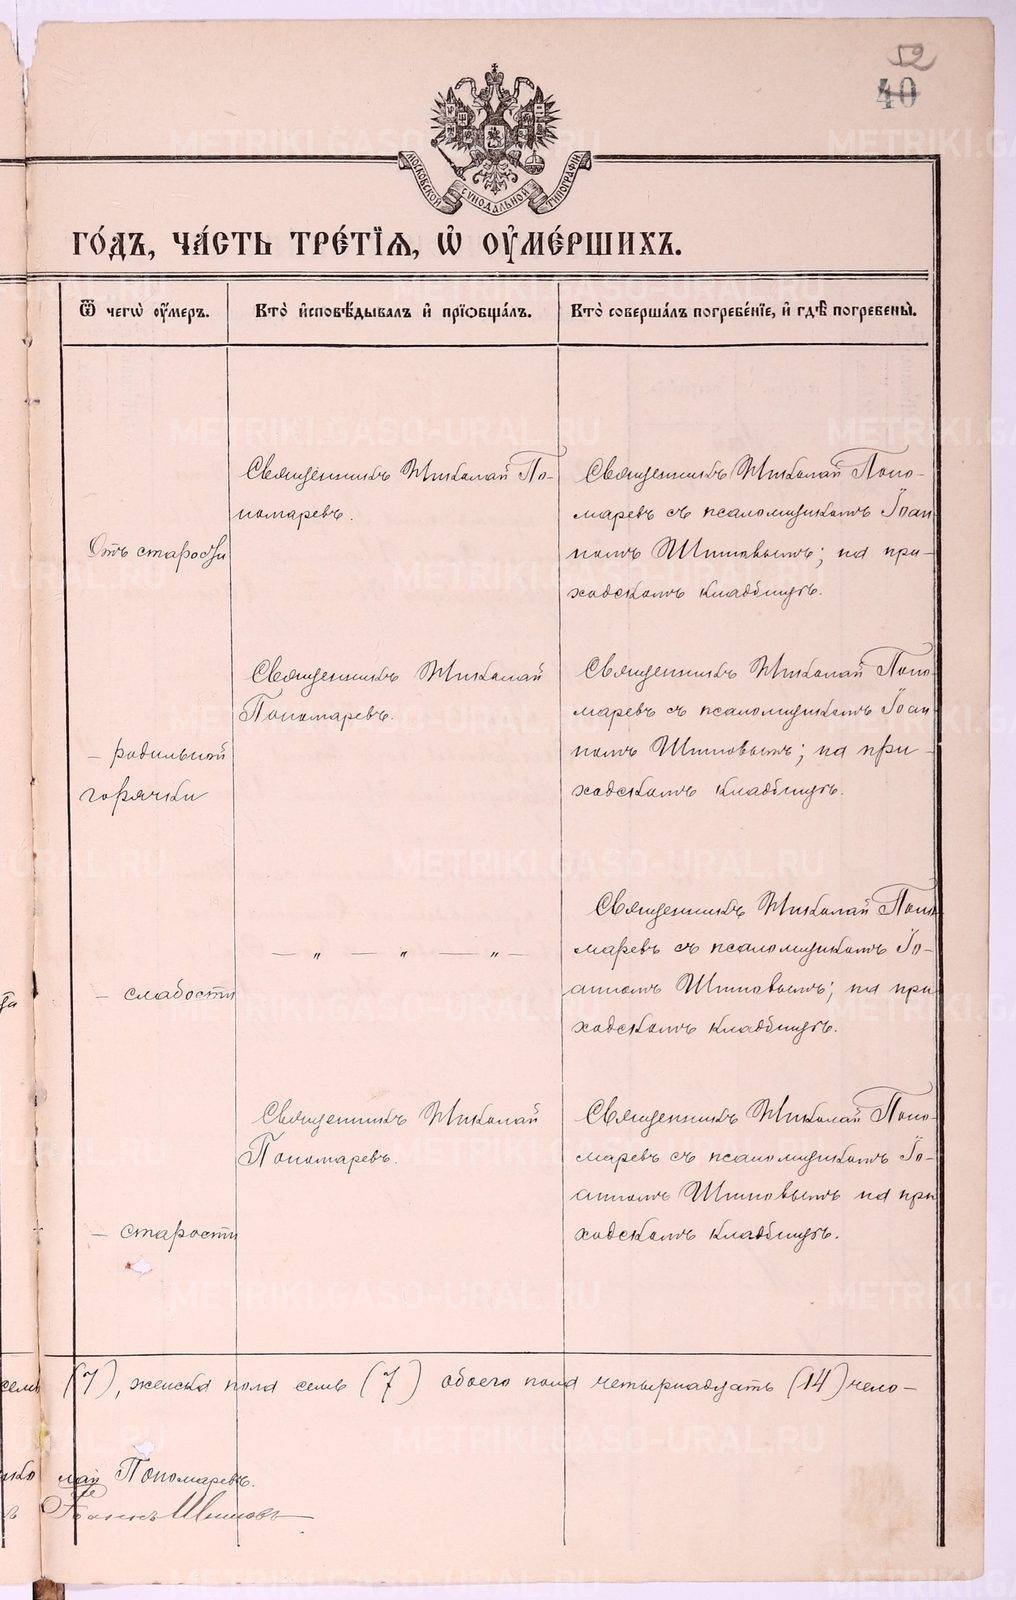 52
40
МОСКОВСКОЙ СѴНОДАЛЬНОЙ ТИПОГРАФІИ
ГО́ДЪ, ЧА́СТЬ ТРЕ́ТІѦ, Ѡ҆ ОУ҆МЕ́РШИХЪ.
Ѿ чегѡ̀ оу҆́меръ.
Кто̀ и҆сповѣ́дывалъ и҆ прїѡбща́лъ.
Кто̀ соверша́лъ погребе́нїе, и҆ гдѣ̀ погребены̀.
Отъ старости
Священникъ Николай По-
номаревъ.
Священникъ Николай Поно-
маревъ съ псаломщикомъ Іоан-
номъ Шишовымъ; на при-
ходскомъ кладбищѣ.
– родильной
горячки
Священникъ Николай
Пономаревъ.
Священникъ Николай Поно-
маревъ съ псаломщикомъ Іоан-
номъ Шишовымъ; на при-
ходскомъ кладбищѣ.
– слабости
— „ — „ — „ —
Священникъ Николай Поно-
маревъ съ псаломщикомъ Іо-
анномъ Шишовымъ; на при-
ходскомъ кладбищѣ.
– старости
Священникъ Николай
Пономаревъ.
Священникъ Николай Поно-
маревъ съ псаломщикомъ Іо-
анномъ Шишовымъ на при-
ходскомъ кладбищѣ.
семь (7), женска пола семь (7) обоего пола четырнадцать (14) чело-
лай Пономаревъ.
Іоаннъ Шишовъ
METRIKI.GASO-URAL.RU